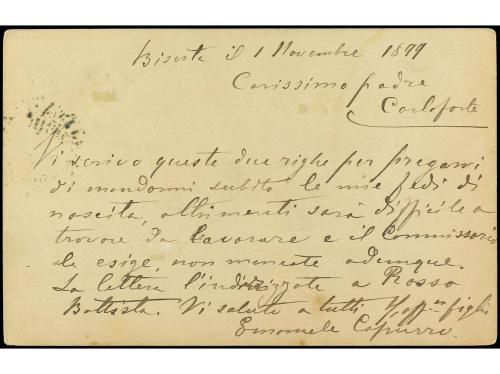 Biserta il 1 Novembre 1899
Carissimo padre
Carloforte
Vi scrivo queste due righe per pregarvi
di mandarmi subito le mie fedi di
nascita, altrimenti sarà difficile a
trovare da lavorare e il Commissario
le esige, non mancate adunque.
La lettera l'indirizzate a Rosso
Battista. Vi saluto a tutti figlio
Emanuele Capurro